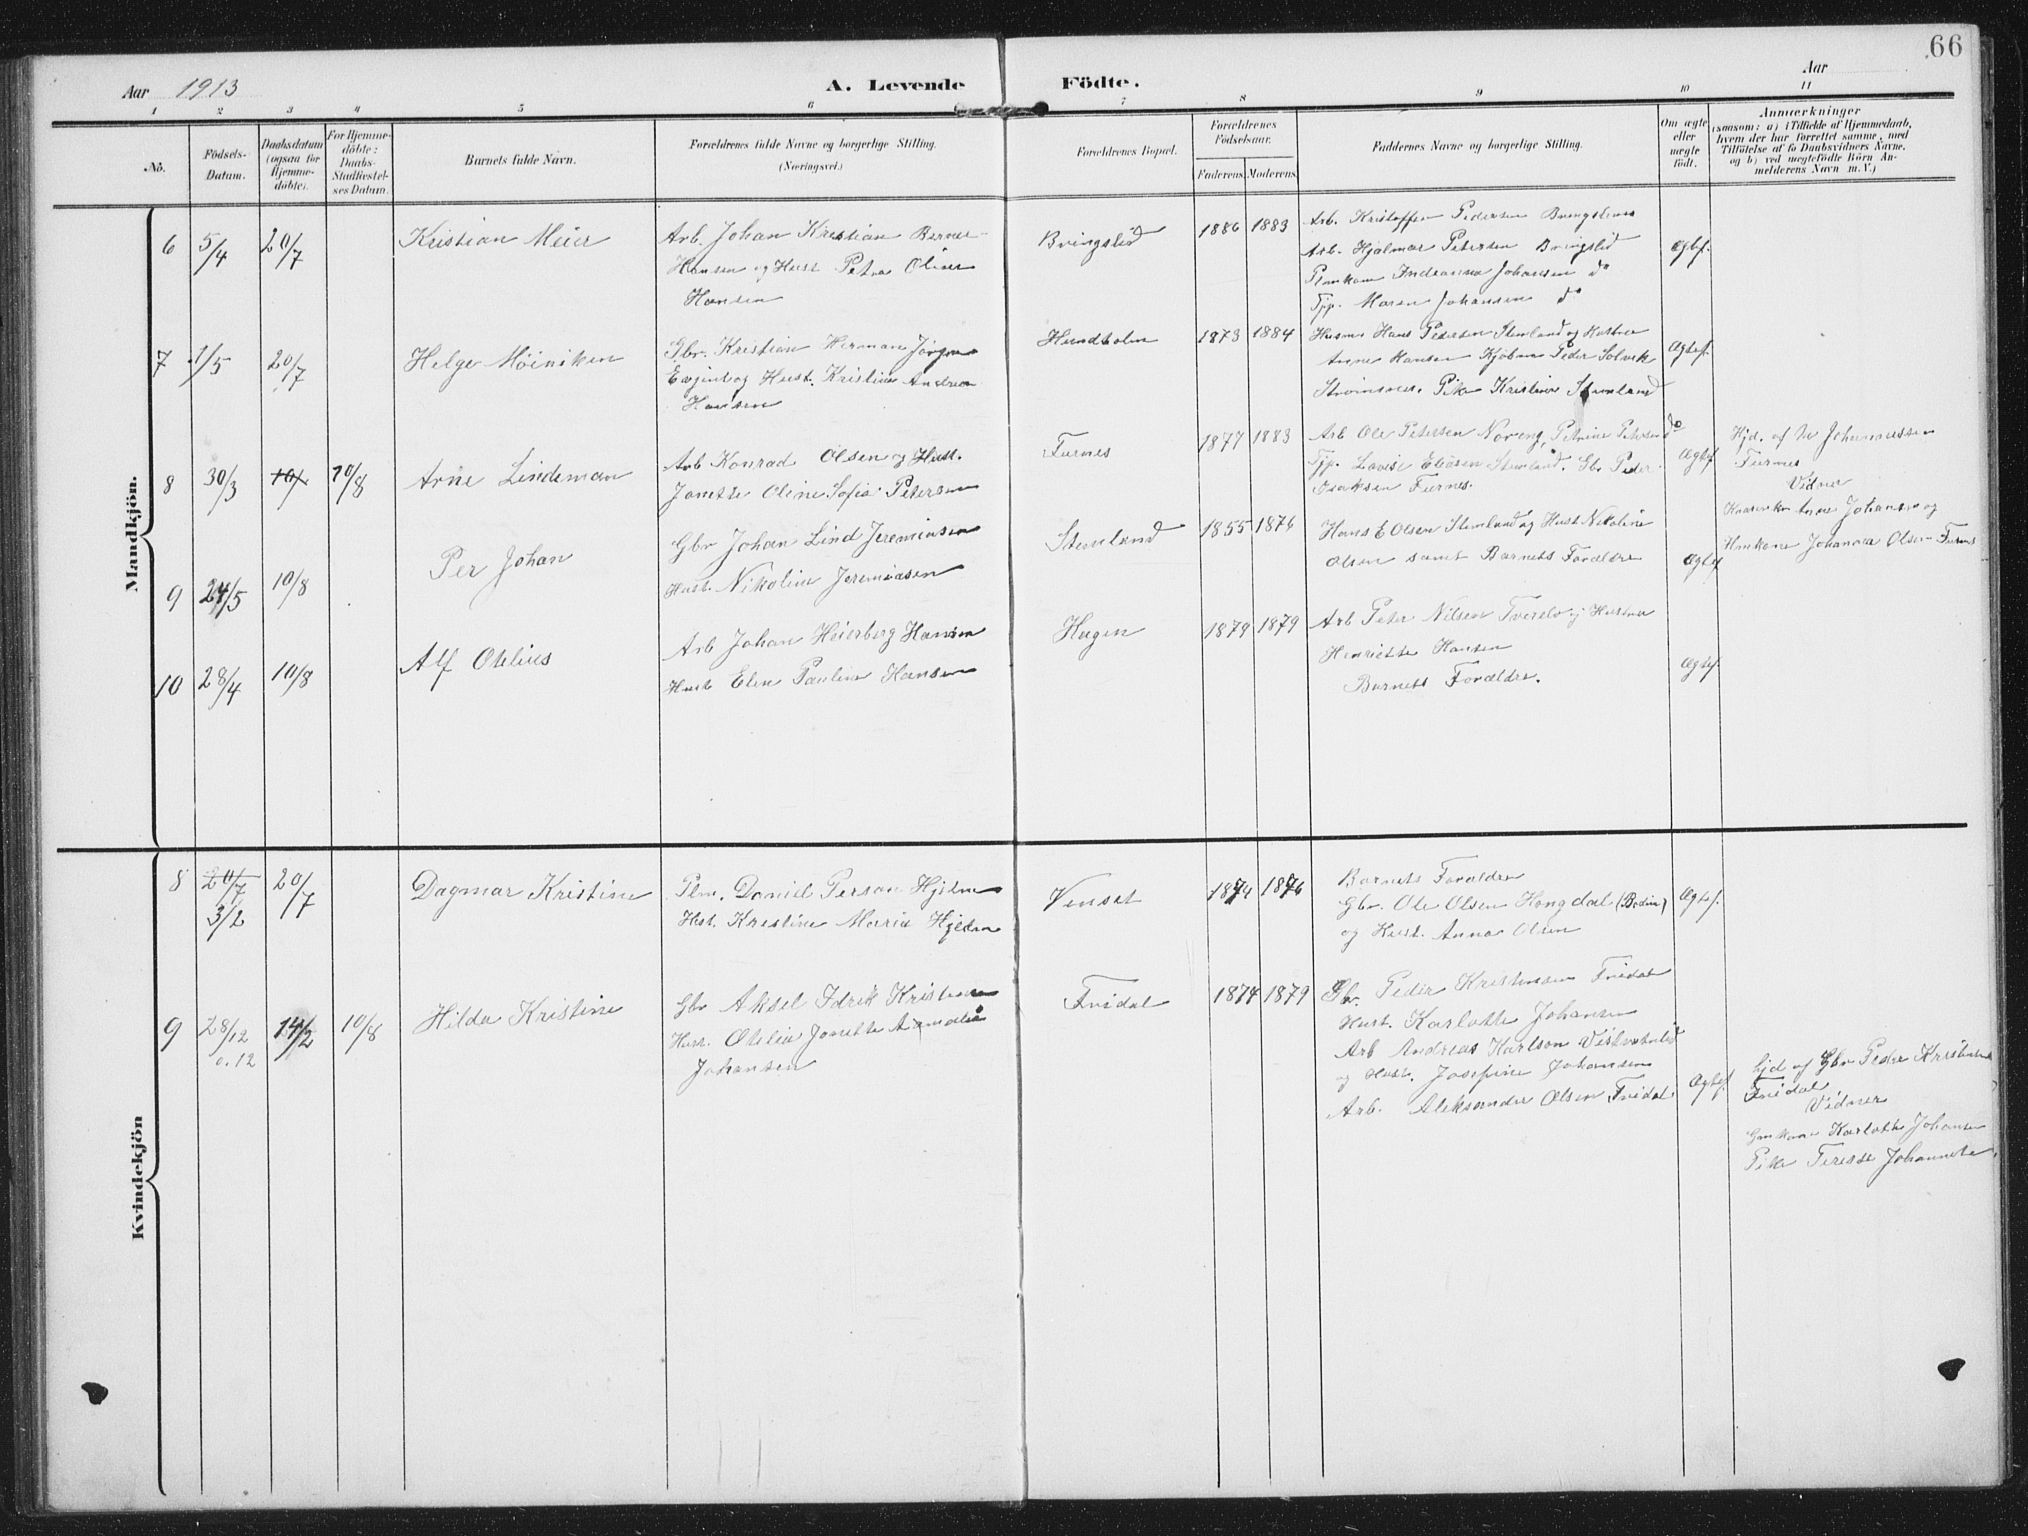 66
Aar 1913
A. Levende Födte.
Aar
1 2 3 4 5 6 7 8 9 10 11
No.
Födsels-
Datum.
Daabsdatum
(ogsaa for
Hjemme-
døbte).
For Hjemme-
döbte:
Daabs-
Stadfæstel-
ses Datum.
Barnets fulde Navn.
Forældrenes fulde Navne og borgerlige Stilling.
(Næringsvei.)
Forældrenes Bopæl.
Forældrenes
Födselsaar.
Faderens. Moderens.
Faddernes Navne og borgerlige Stilling.
Om ægte
eller
uægte
födt.
Anmærkninger
(saasom: a) i Tilfælde af Hjemmedaab,
hvem der har forrettet samme, med
Tilföielse af to Daabsvidners Navne,
og b) ved uægtefödte Börn An-
melderens Navn m. V.)
Mandkjön.
6 5/4 20/7
Kristian Meier
Arb. Johan Kristian Berner
Hansen og Hust. Petra
Hansen
Bringslid
1886 1883
Arb. Kristoffer Pedersen
Arb. Hjalmar Petersen Bringslid
Indianna Johansen do
Tjp. Maren Johansen do
Ægtef.
7 1/5 20/7
Helge Möiniken
Gbr. Kristian Herman
og Hust. Kristine Andrea
Hansen
Hundholm
1873 1884
Husm. Hans Petersen Stemland og Hustru
Anne Hansen Kjöbm. Peder Solvik
Strömsnes. Pike Kristine Stemland
Ægtef.
8 30/3 10/ 10/8
Arne Lindeman
Arb Konrad Olsen og Hust.
Jonette Oline Sofia Petersen
Furnes
1877 1883
Arb Ole Petersen Noreng, Petrine Petersen do
Tjp. Lovise Stemland. Gbr Peder
Isaksen Furnes.
Ægtef
Hjd. af
Furnes
Vidner
Anne Johansen og
Hmkone Johanna Olsen Furnes
9 24/5 10/8
Per Johan
Gbr Johan Lind Jeremiasen
Hust. Nikoline Jeremiasen
Stemland
1855 1876
Hans E Olsen Stemland og Hust Nikoline
Olsen samt Barnets Forældre
Ægtef
10 28/4 10/8
Alf Otelius
Arb Johan Heierberg Hansen
Hust Elen Pauline Hansen
Hagen
1879 1879
Arb Peter Nilsen Tverelv og Hustru
Henriette Hansen
Barnets Forældre.
Ægtef.
Kvindekjön
8 20/7 20/7
3/2
Dagmar Kristine
Plm. Daniel Person
Hst. Kristine Marie
Venset
1874 1876
Barnets Forældre
Gbr. Ole Olsen Hongdal (Bodin)
og Hust. Anna Olsen
Ægtef.
9 28/12 14/2 10/8
o. 12
Hilda Kristine
Gbr Aksel Idrik Kristensen
Hust. Otelia Jonette
Johansen
Fridal
1874 1879
Gbr. Peder Kristensen Fridal
Hust. Karlotte Johansen
Arb Andreas Karlson
og Hust. Josefine Johansen
Arb. Aleksander Olsen Fridal
Ægtef.
Hjd af Gbr Peder Kristensen
Fridal
Vidner
Gmkone Karlotte Johansen
Pike Terese